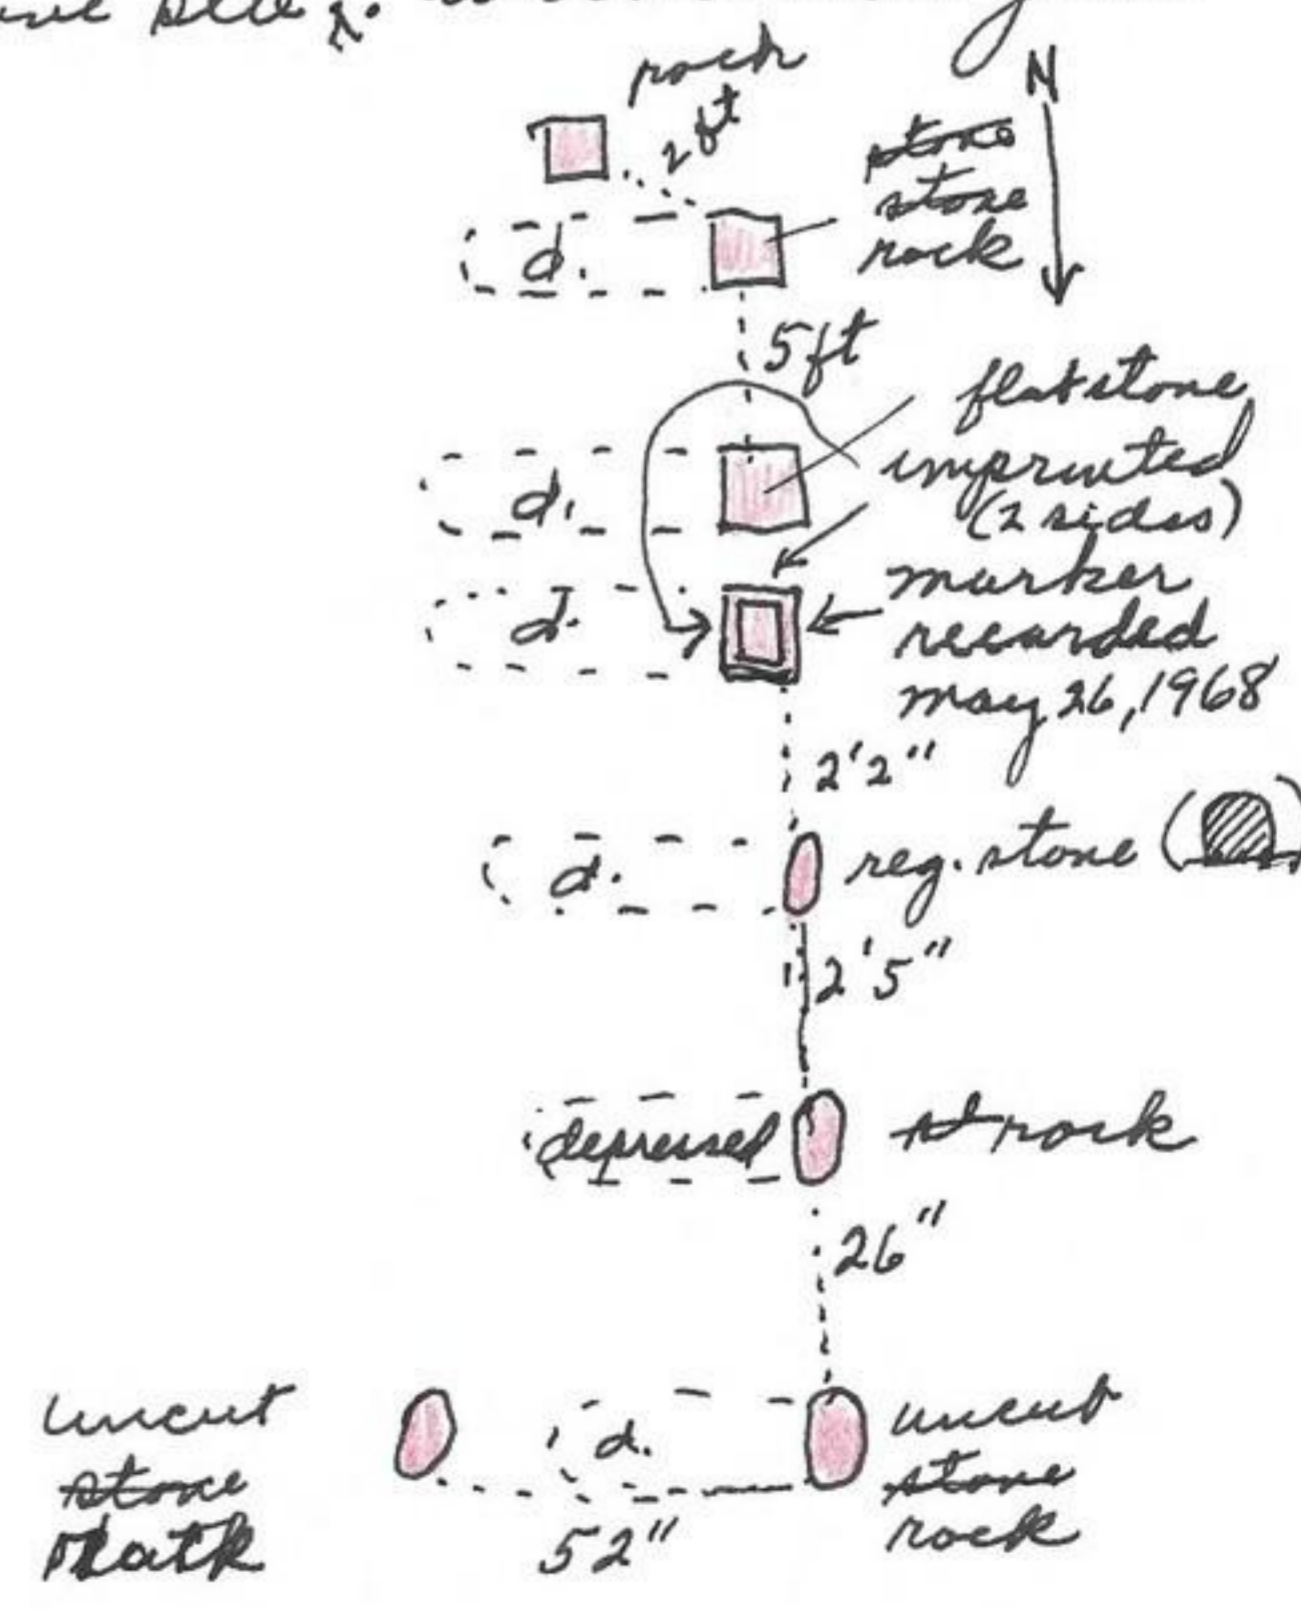 rock
N
2 ft
stone
stone
rock
d.
5ft
flatstone
imprinted
(2 sides)
d.
marker
recorded
May 26, 1968
d.
2'2"
reg. stone ( )
d.
2'5"
depressed
st rock
26"
uncut
stone
d.
uncut
stone
rock
52"